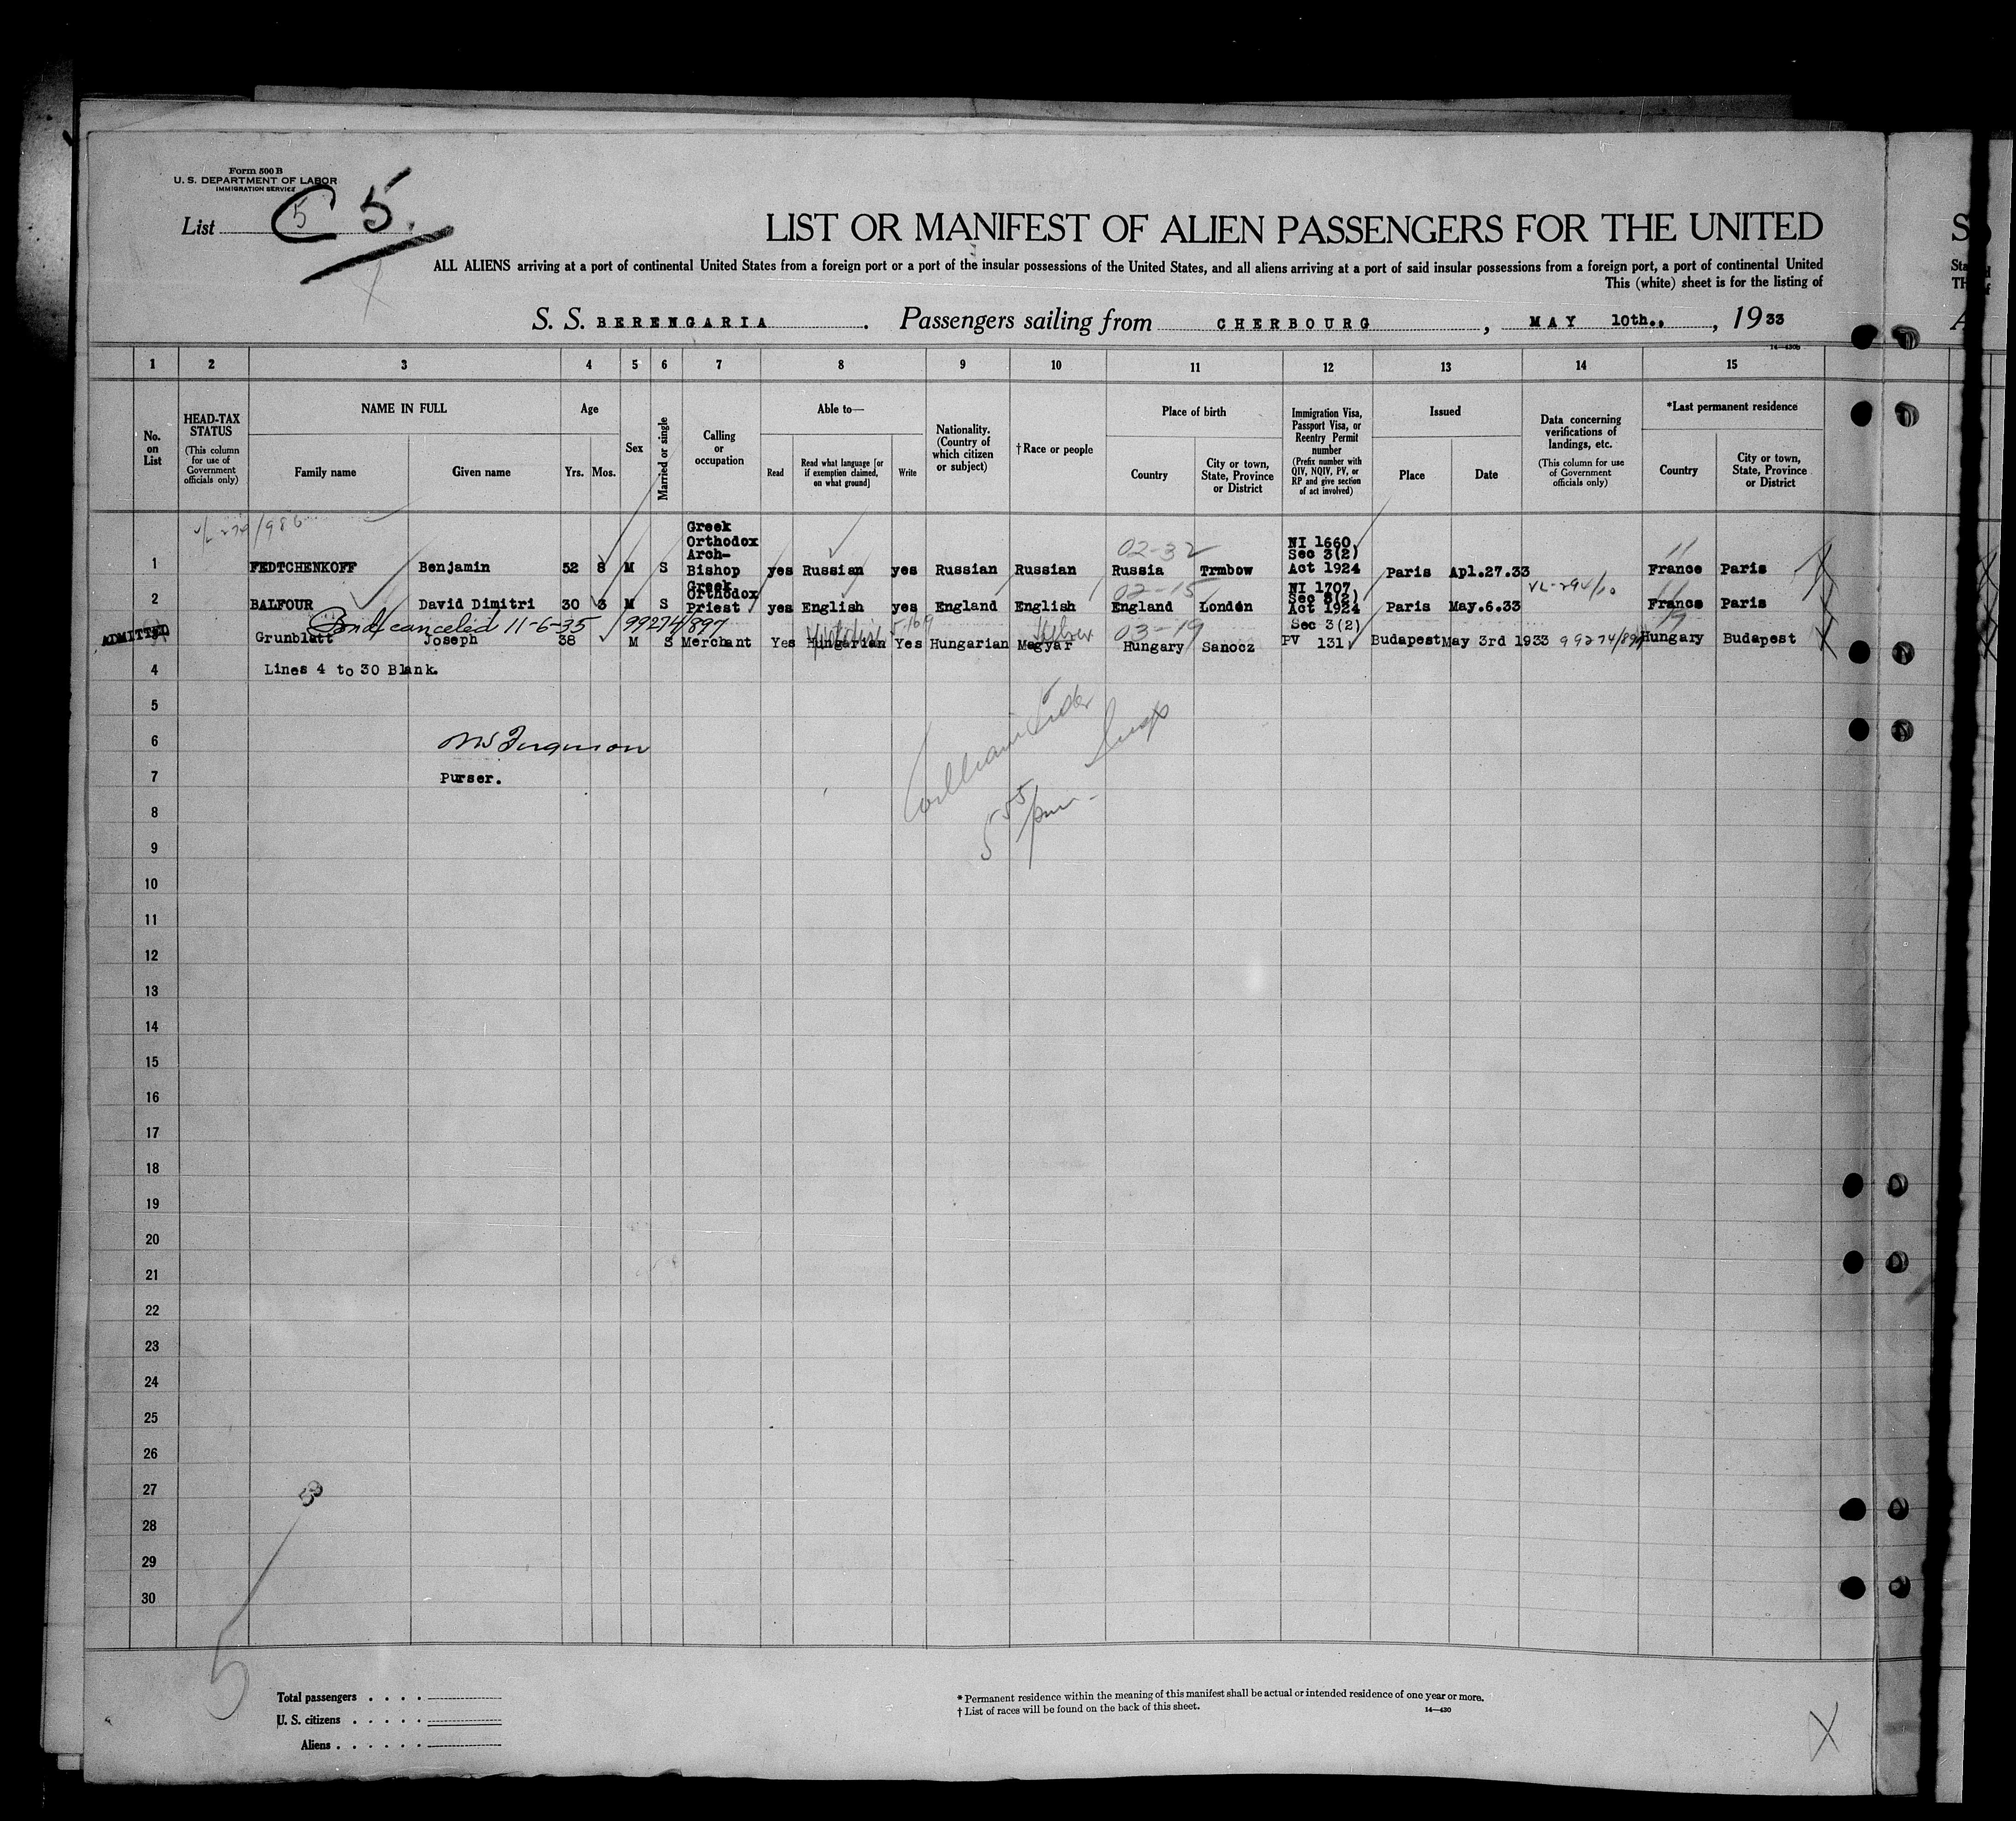 Form 500 B
U. S. DEPARTMENT OF LABOR
IMMIGRATION SERVICE
List 5 5.
LIST OR MANIFEST OF ALIEN PASSENGERS FOR THE UNITED
ALL ALIENS arriving at a port of continental United States from a foreign port or a port of the insular possessions of the United States, and all aliens arriving at a port of said insular possessions from a foreign port, a port of continental United
This (white) sheet is for the listing of
S. S. BERENGARIA. Passengers sailing from CHERBOURG, MAY 10th., , 1933
14—430b
1 2 3 4 5 6 7 8 9 10 11 12 13 14 15
No. on List
HEAD-TAX STATUS
(This column for use of Government officials only)
NAME IN FULL
Family name Given name
Age
Yrs. Mos.
Sex
Married or single
Calling or occupation
Able to—
Read Read what language [or if exemption claimed, on what ground] Write
Nationality. (Country of which citizen or subject)
† Race or people
Place of birth
Country City or town, State, Province or District
Immigration Visa, Passport Visa, or Reentry Permit number
(Prefix number with QIV, NQIV, PV, or RP and give section of act involved)
Issued
Place Date
Data concerning verifications of landings, etc.
(This column for use of Government officials only)
*Last permanent residence
Country City or town, State, Province or District
1 FEDTCHENKOFF Benjamin 52 8 M S Greek Orthodox Arch- Bishop yes Russian yes Russian Russian 02-32 Russia Trmbow NI 1660 Sec 3(2) Act 1924 Paris Apl.27.33 11 France Paris
2 BALFOUR David Dimitri 30 3 M S Greek Orthodox Priest yes English yes England English 02-15 England London NI 1707 Sec 3(2) Act 1924 Paris May.6.33 11 France Paris
Bond canceled 11-6-35 99274/897
ADMITTED Grunblatt Joseph 38 M S Merchant Yes Hungarian Yes Hungarian Magyar Hebrew 03-19 Hungary Sanocz Sec 3(2) PV 131 Budapest May 3rd 1933 99274/897 Hungary Budapest
4 Lines 4 to 30 Blank.
5
6
7 Purser.
8
5 55/pm
9
10
11
12
13
14
15
16
17
18
19
20
21
22
23
24
25
26
27
28
29
30
5
Total passengers
U. S. citizens
Aliens
* Permanent residence within the meaning of this manifest shall be actual or intended residence of one year or more.
† List of races will be found on the back of this sheet.
14—430